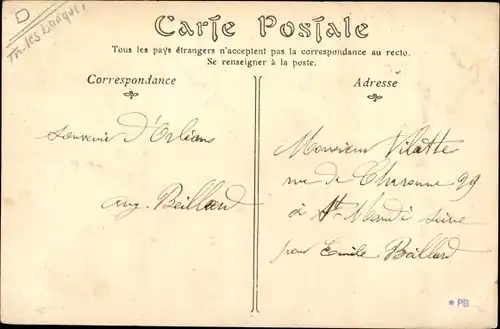 D
Carte Postale
Tous les pays étrangers n'acceptent pas la correspondance au recto.
Se renseigner à la poste.
Correspondance
Adresse
souvenir d'Orléans
Aug. Beillard
Monsieur Vilatte
rue de Charonne 99
à St-Mandé Seine
pour Emile Beillard
*PB